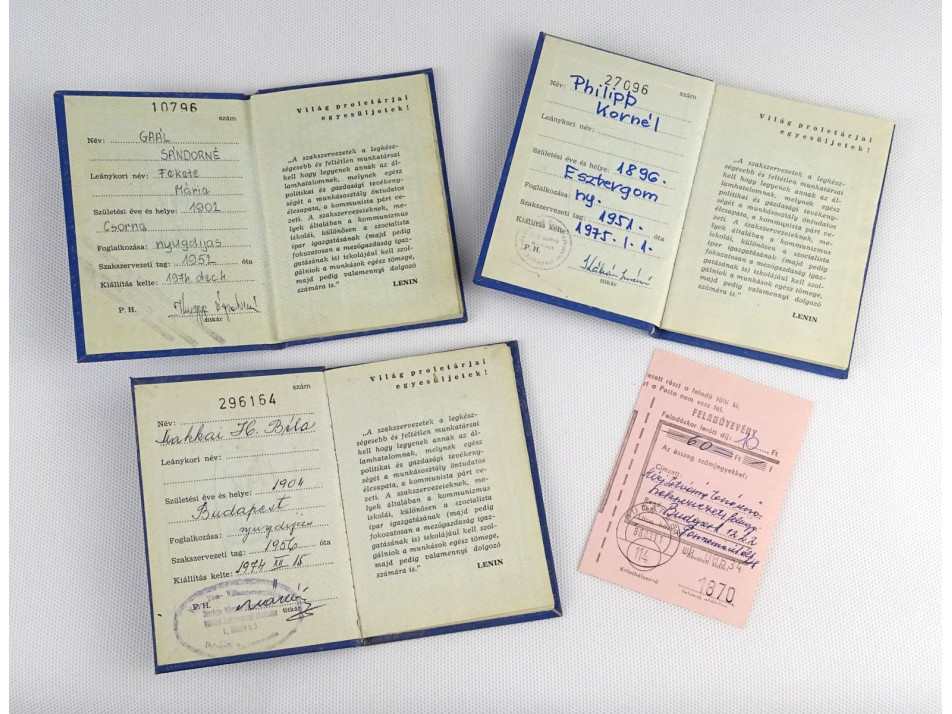 10796
szám
Név: GAÁL
SÁNDORNÉ
Leánykori név: Fekete
Mária
Születési éve és helye: 1902
Csorna
Foglalkozása: nyugdíjas
Szakszervezeti tag: 1952 óta
Kiállítás kelte: 1974 dec 4
P. H.
titkár
Világ proletárjai
egyesüljetek!
„A szakszervezetek a legkész-
ségesebb és feltétlen munkatársai
kell hogy legyenek annak az ál-
lamhatalomnak, melynek egész
politikai és gazdasági tevékeny-
ségét a munkásosztály öntudatos
élcsapata, a kommunista párt ve-
zeti. A szakszervezeteknek, me-
lyek általában a kommunizmus
iskolái, különösen a szocialista
ipar igazgatásának (majd pedig
fokozatosan a mezőgazdaság igaz-
gatásának is) iskolájául kell szol-
gálniok a munkások egész tömege,
majd pedig valamennyi dolgozó
számára is."
LENIN
27096
szám
Név: Philipp
Kornél
Leánykori név:
Születési éve és helye: 1896.
Esztergom
Foglalkozása: ny.
Szakszervezeti tag: 1951. óta
Kiállítás kelte: 1975. I. 1.
P. H.
titkár
Világ proletárjai
egyesüljetek!
„A szakszervezetek a legkész-
ségesebb és feltétlen munkatársai
kell hogy legyenek annak az ál-
lamhatalomnak, melynek egész
politikai és gazdasági tevékeny-
ségét a munkásosztály öntudatos
élcsapata, a kommunista párt ve-
zeti. A szakszervezeteknek, me-
lyek általában a kommunizmus
iskolái, különösen a szocialista
ipar igazgatásának (majd pedig
fokozatosan a mezőgazdaság igaz-
gatásának is) iskolájául kell szol-
gálniok a munkások egész tömege,
majd pedig valamennyi dolgozó
számára is."
LENIN
szám
296154
Név:
Makkai H. Béla
Leánykori név:
Születési éve és helye: 1904
Budapest
Foglalkozása: nyugdíjas
Szakszervezeti tag: 1956 óta
Kiállítás kelte: 1974 XII 15
P. H.
titkár
Világ proletárjai
egyesüljetek!
„A szakszervezetek a legkész-
ségesebb és feltétlen munkatársai
kell hogy legyenek annak az ál-
lamhatalomnak, melynek egész
politikai és gazdasági tevékeny-
ségét a munkásosztály öntudatos
élcsapata, a kommunista párt ve-
zeti. A szakszervezeteknek, me-
lyek általában a kommunizmus
iskolái, különösen a szocialista
ipar igazgatásának (majd pedig
fokozatosan a mezőgazdaság igaz-
gatásának is) iskolájául kell szol-
gálniok a munkások egész tömege,
majd pedig valamennyi dolgozó
számára is."
LENIN
részt a feladó tölti ki,
a Posta nem vesz fel.
FELADÓVEVÉNY
Feladáskor lerótt díj: 10 Ft
60 Ft
Az összeg számjegyekkel:
Címzett:
114
1870